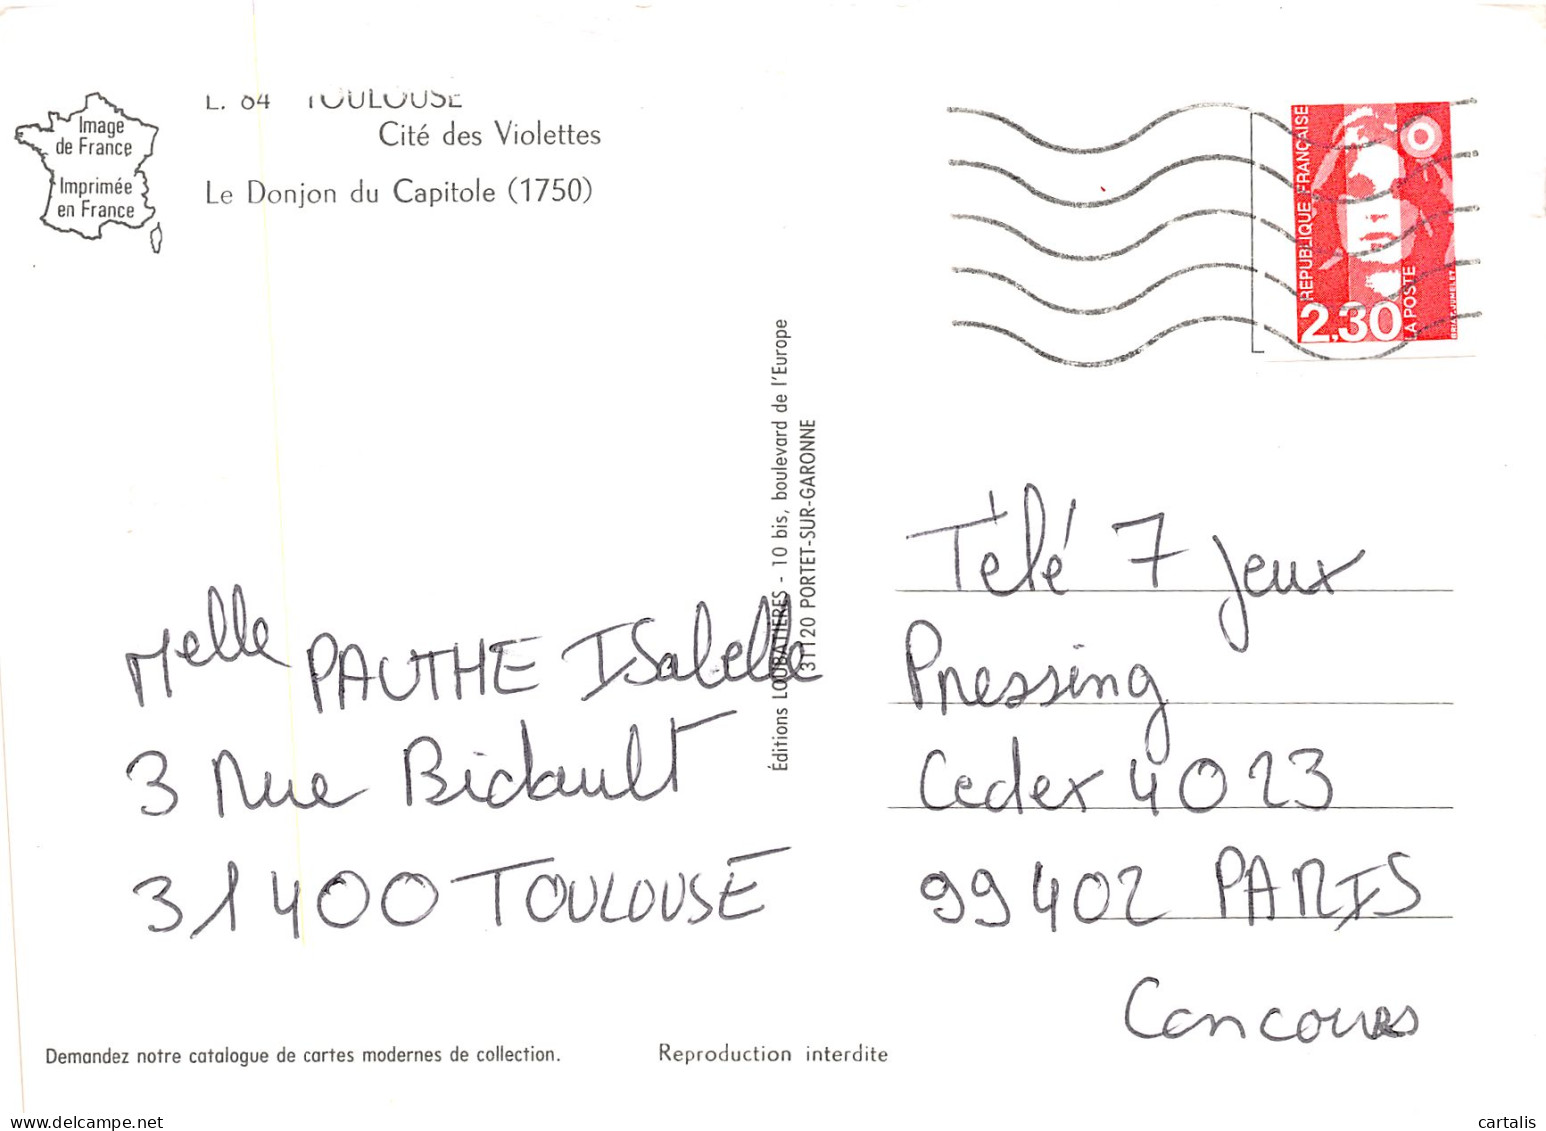 Image
de France
Imprimée
en France
L. 64 TOULOUSE
Cité des Violettes
Le Donjon du Capitole (1750)
RÉPUBLIQUE FRANÇAISE
2,30
LA POSTE
BRIAT-JUMELET
Éditions LOUBATIÈRES - 10 bis, boulevard de l'Europe
31120 PORTET-SUR-GARONNE
Melle PAUTHE ISabelle
3 Rue Bidault
31400 TOULOUSE
Télé 7 jeux
Pressing
Cedex 4023
99402 PARIS
Concours
Demandez notre catalogue de cartes modernes de collection.
Reproduction interdite
delcampe.net
cartalis